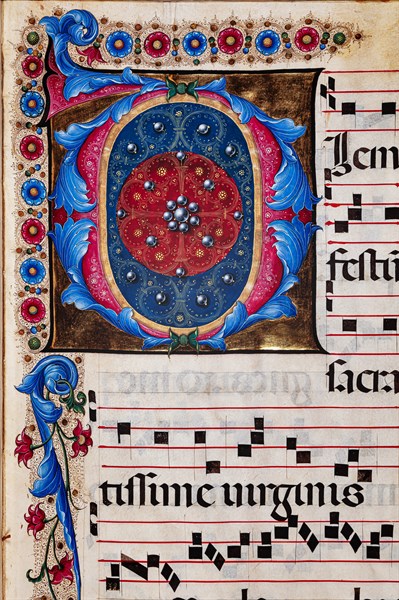 DIem
festi
sacra
tissime uirginis